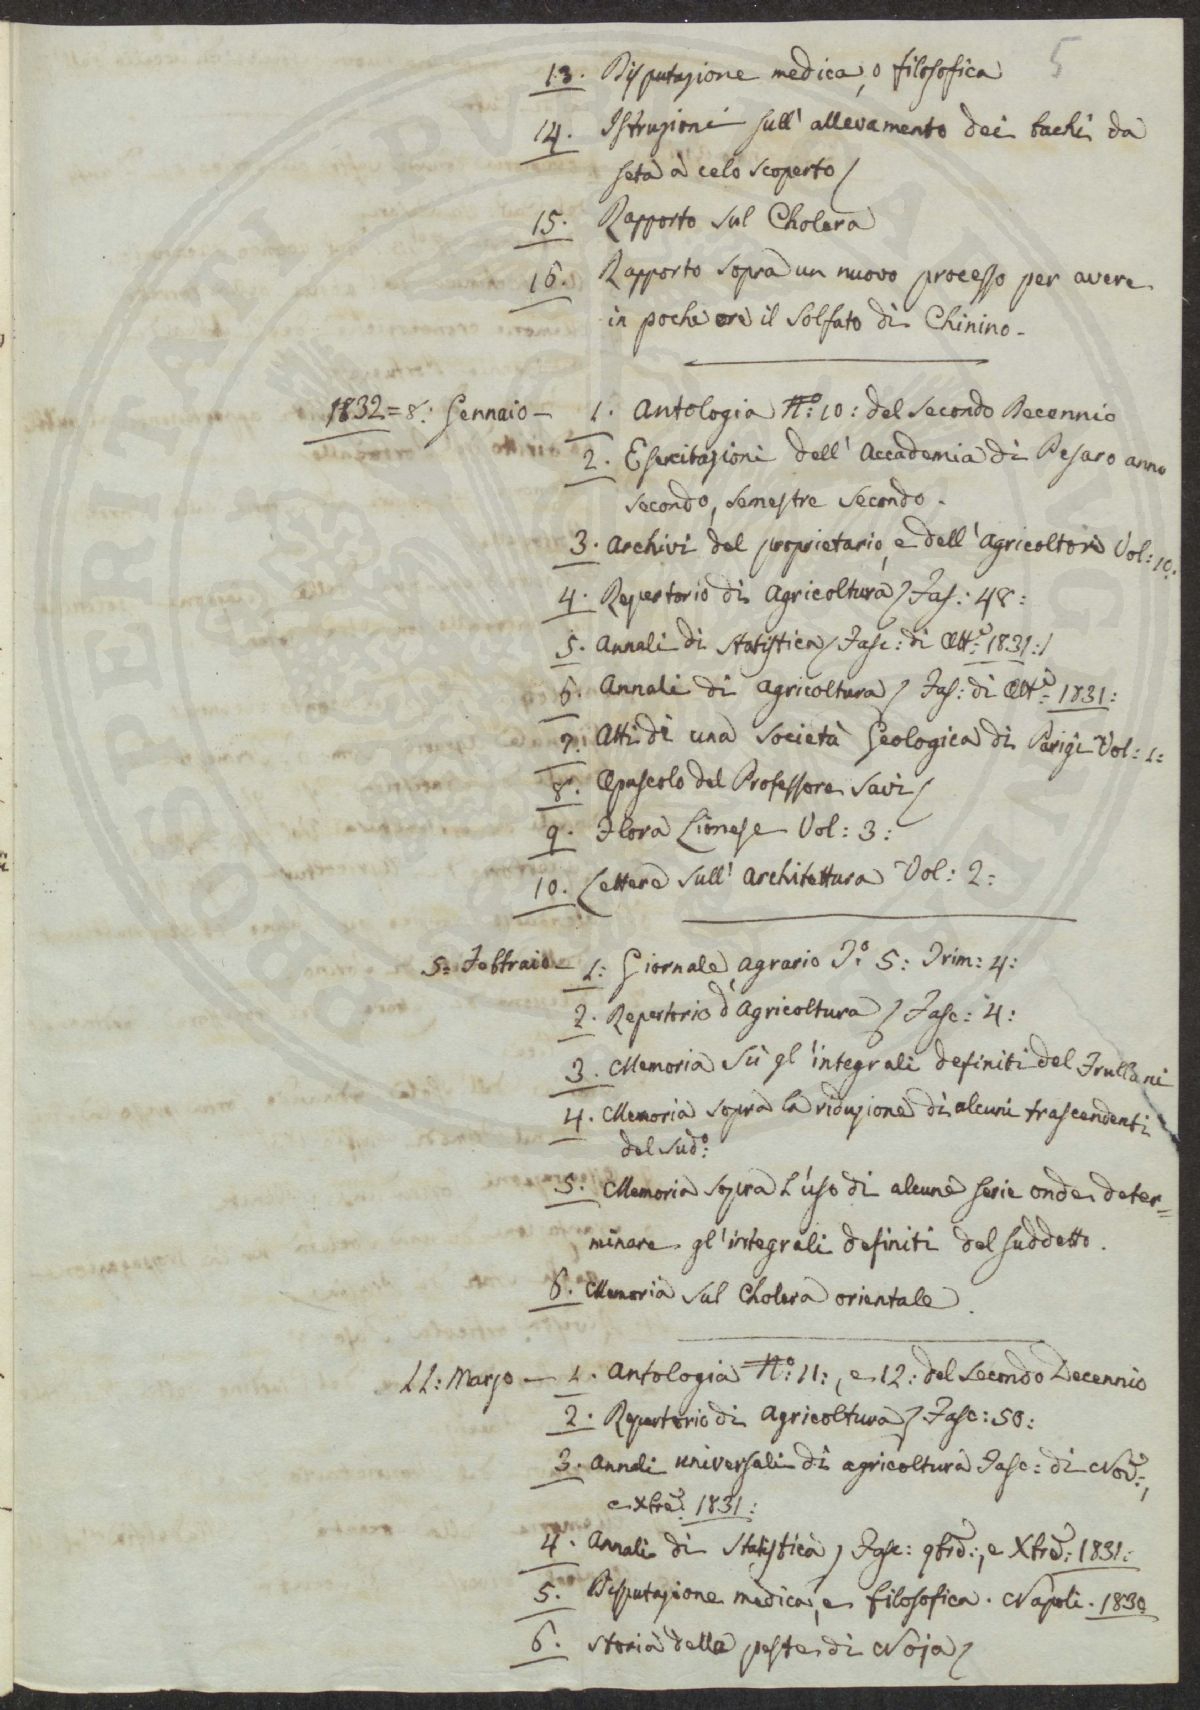 5
13. Disputazione medica, o filosofica
14. Istruzioni sull' allevamento dei bachi da
seta a celo scoperto
15. Rapporto sul Cholera
16. Rapporto sopra un nuovo processo per avere
in poche ore il Solfato di Chinino.
1832 = 8: Gennaio - 1. Antologia N.º: 10: del secondo Decennio
2. Esercitazioni dell' Accademia di Pesaro anno
secondo, semestre secondo.
3. Archivi del proprietario, e dell' agricoltore Vol: 10:
4. Repertorio di Agricoltura / Fas: 48:
5. Annali di Statistica / Fasc: di Ott.e: 1831:/
6. Annali di agricoltura / Fas: di Ott.e: 1831:
7. Atti di una società Geologica di Parigi Vol: 1:
8. Opuscolo del Professore Savi /
9. Flora Lionese Vol: 3:
10. Lettere sull' architettura Vol: 2:
5: Febbraio - 1: Giornale agrario T.º 5: Trim: 4:
2. Repertorio d'Agricoltura / Fasc: 4:
3. Memoria sù gl'integrali definiti del Frullani
4. Memoria sopra la riduzione di alcuni trascendenti
del sud.º:
5. Memoria sopra l'uso di alcune serie onde deter=
minare gl'integrali definiti del suddetto.
6. Memoria sul Cholera orientale.
11: Marzo - 1. Antologia N.º: 11:, e 12: del secondo Decennio
2. Repertorio di Agricoltura / Fasc: 50:
3. Annali universali di agricoltura Fasc: di Nov.e:,
e Xbre: 1831:
4. Annali di Statistica / Fasc: 9bre:, e Xbre: 1831:
5. Disputazione medica, e filosofica. Napoli. 1830
6. Storia della peste di Noja /